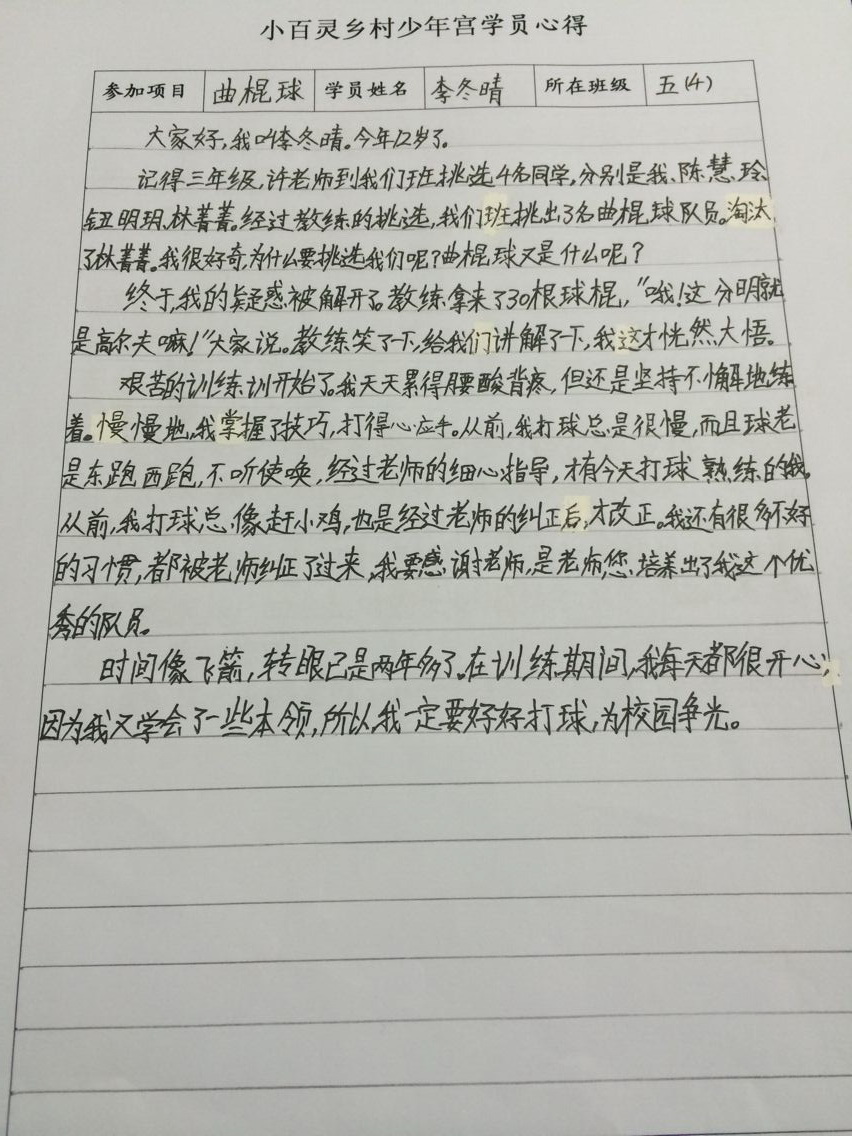 小百灵乡村少年宫学员心得
参加项目 曲棍球 学员姓名 李冬晴 所在班级 五(4)
大家好,我叫李冬晴。今年12岁了。
记得三年级,许老师到我们班挑选4名同学,分别是我、陈慧玲、
钮明玥、林菁菁。经过教练的挑选,我们班挑出3名曲棍球队员。淘汰
了林菁菁。我很好奇,为什么要挑选我们呢?曲棍球又是什么呢?
终于,我的疑惑被解开了。教练拿来了30根球棍,"哦!这分明就
是高尔夫嘛!"大家说。教练笑了一下,给我们讲解了一下,我这才恍然大悟。
艰苦的训练训开始了。我天天累得腰酸背疼,但还是坚持不懈地练
着。慢慢地,我掌握了技巧,打得心应手。从前,我打球总是很慢,而且球老
是东跑西跑,不听使唤,经过老师的细心指导,才有今天打球熟练的我。
从前,我打球总像赶小鸡,也是经过老师的纠正后,才改正。我还有很多不好
的习惯,都被老师纠正了过来,我要感谢老师,是老师,您培养出了我这个优
秀的队员。
时间像飞箭,转眼已是两年多了。在训练期间,我每天都很开心,
因为我又学会了一些本领,所以,我一定要好好打球,为校园争光。